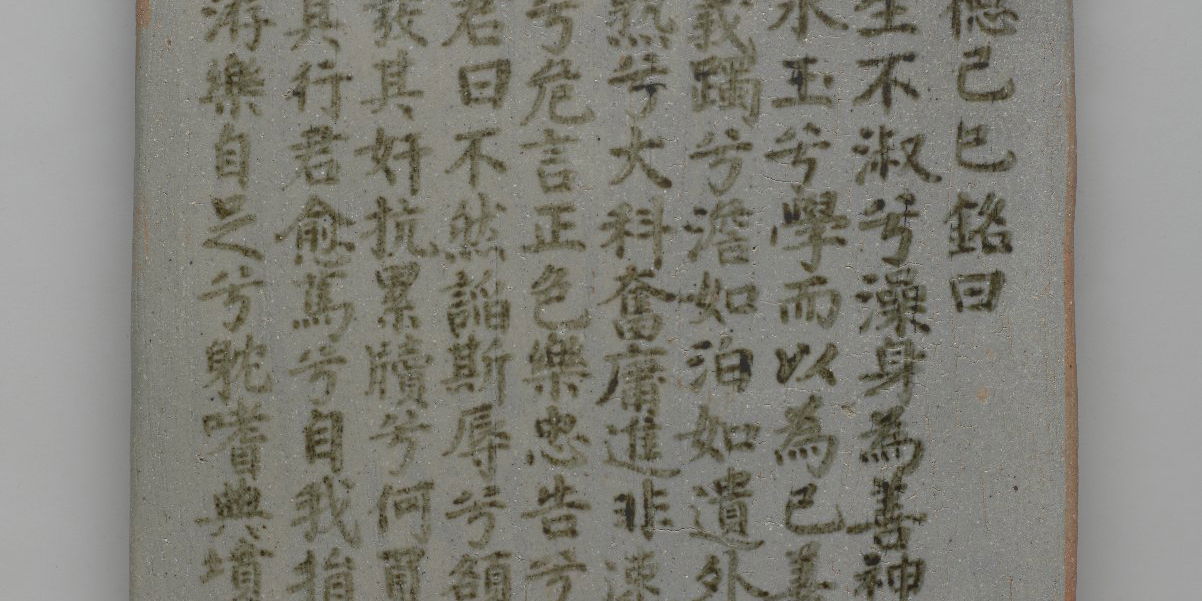 德己巳銘曰
生不淑兮澡身為善神
水玉兮學而以為己善
義躅兮澹如泊如遺外
熱兮大科奮庸進非
兮危言正色樂忠告兮
君曰不然諂斯辱兮頷
裴其奸抗累牘兮何
其行君愈馬兮自我指
游樂自足兮耽嗜典墳